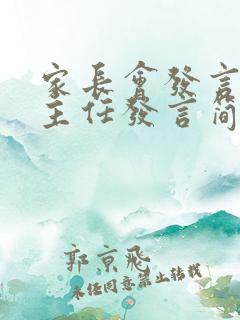 家長會發言
主任發言简
郭京飛
未经同意禁止转载